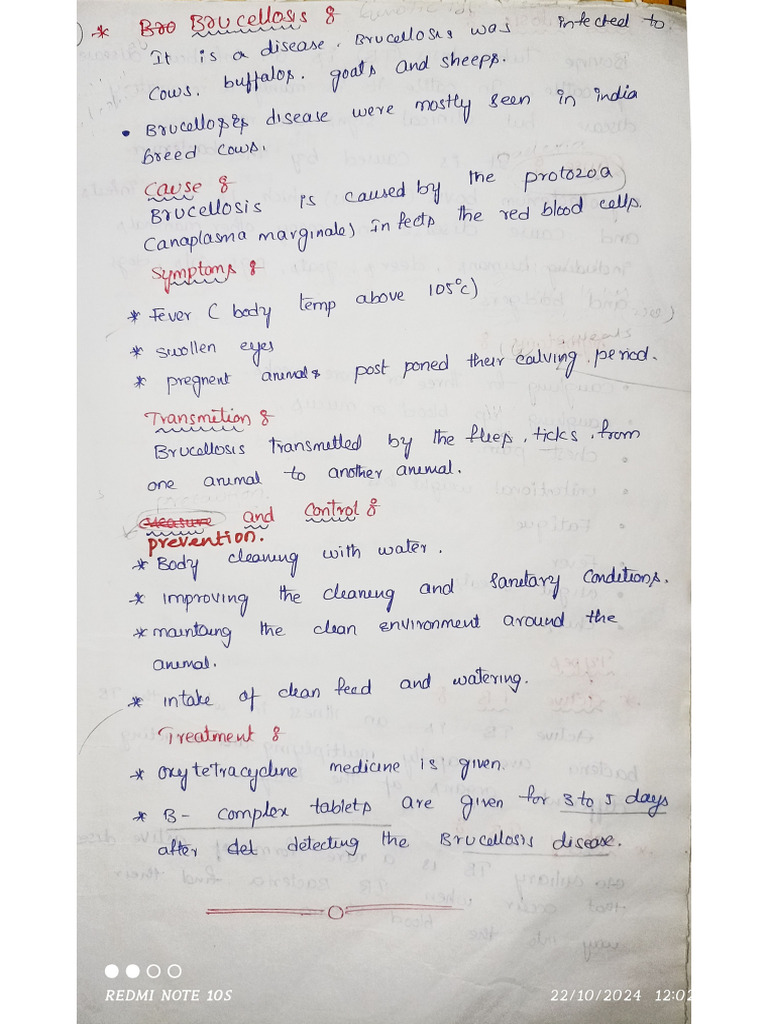 * Bro Brucellosis :
It is a disease. Brucellosis was infected to
cows. buffalos. goats and sheeps.
• Brucellosis disease were mostly seen in india
breed cows.
Cause :
Brucellosis is caused by the protozoa
(anaplasma marginale) infects the red blood cells.
Symptoms :
* Fever ( body temp above 105°c)
* swollen eyes
* pregnent animals post poned their calving period.
Transmetion :
Brucellosis transmetted by the fleep, ticks, from
one animal to another animal.
Measure and Control :
prevention.
* Body cleaning with water.
* improving the cleaning and sanetary Conditions.
* maintaing the clean environment around the
animal.
* intake of clean feed and watering.
Treatment :
* oxytetracycline medicine is given.
* B- complex tablets are given for 3 to 5 days
after del detecting the Brucellosis disease.
REDMI NOTE 10S
22/10/2024 12:02